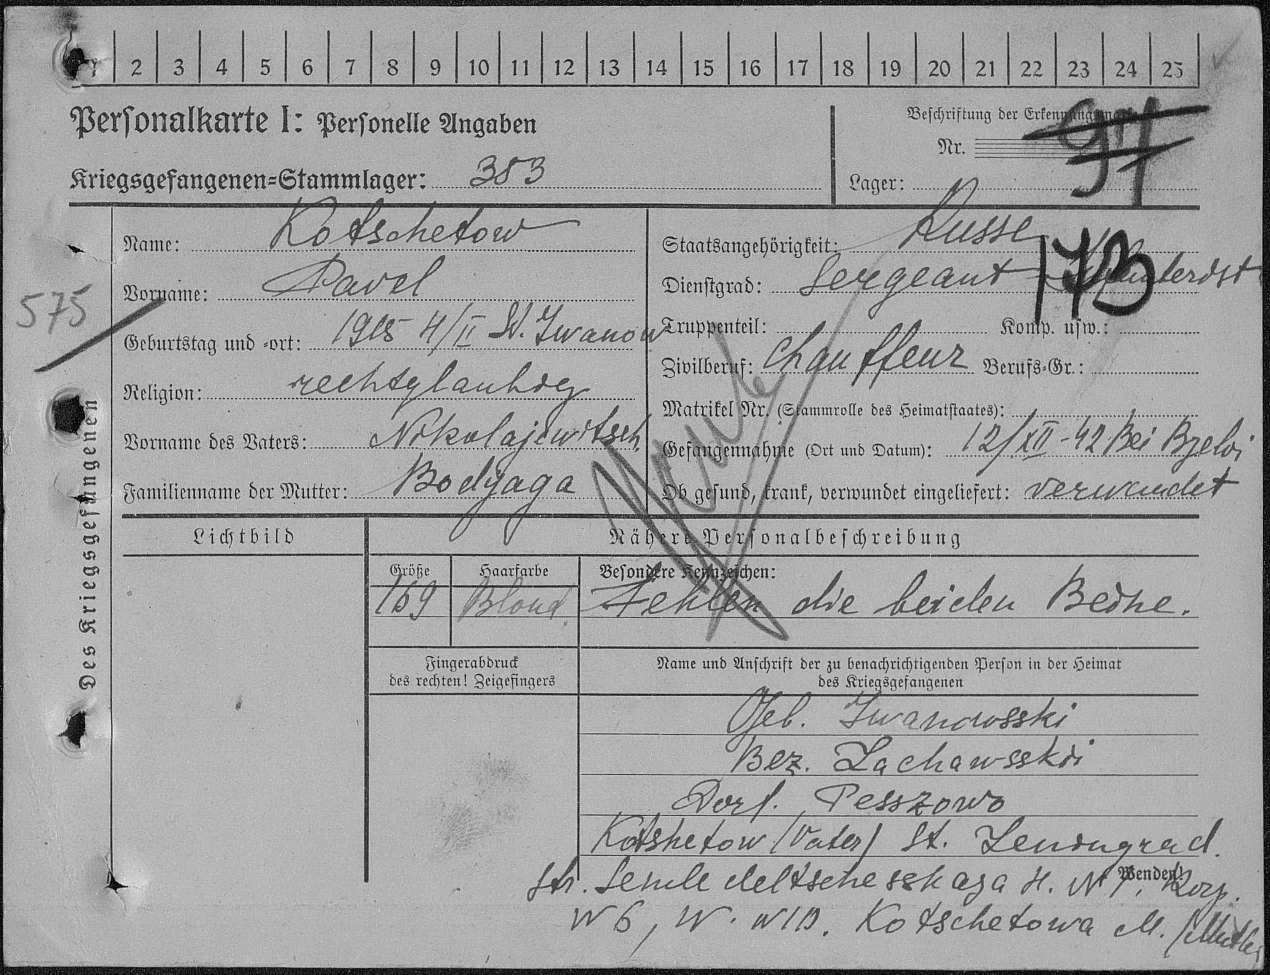 1 2 3 4 5 6 7 8 9 10 11 12 13 14 15 16 17 18 19 20 21 22 23 24 25
Personalkarte I: Personelle Angaben
Beschriftung der Erkennungsmarke
Nr.
97
Kriegsgefangenen=Stammlager: 383
Lager:
Des Kriegsgefangenen
575
Name: Kotschetow
Vorname: Pavel
Geburtstag und -ort: 1915 4/II St. Iwanow
Religion: rechtglaubig
Vorname des Vaters: Nikolajewitsch
Familienname der Mutter: Bodjaga
Staatsangehörigkeit: Russe
173
Dienstgrad: Sergeant
Truppenteil: Komp. usw.:
Zivilberuf: Chauffeur Berufs-Gr.:
Matrikel Nr. (Stammrolle des Heimatstaates):
Gefangennahme (Ort und Datum): 12/XII-42 Bei Bjeloi
Ob gesund, krank, verwundet eingeliefert: verwundet
Lichtbild
Nähere Personalbeschreibung
Größe Haarfarbe Besondere Kennzeichen:
169 Blond. Fehlen die beiden Beine.
Fingerabdruck
des rechten! Zeigefingers
Name und Anschrift der zu benachrichtigenden Person in der Heimat
des Kriegsgefangenen
Geb. Iwanowsski
Bez. Lachawsskoi
Dorf. Pesszowo
Kotshetow (Vater) St. Leningrad.
Wenden!
Str. H. N 7, Korp.
N 6, W. N 10. Kotschetowa M. (Mutter)